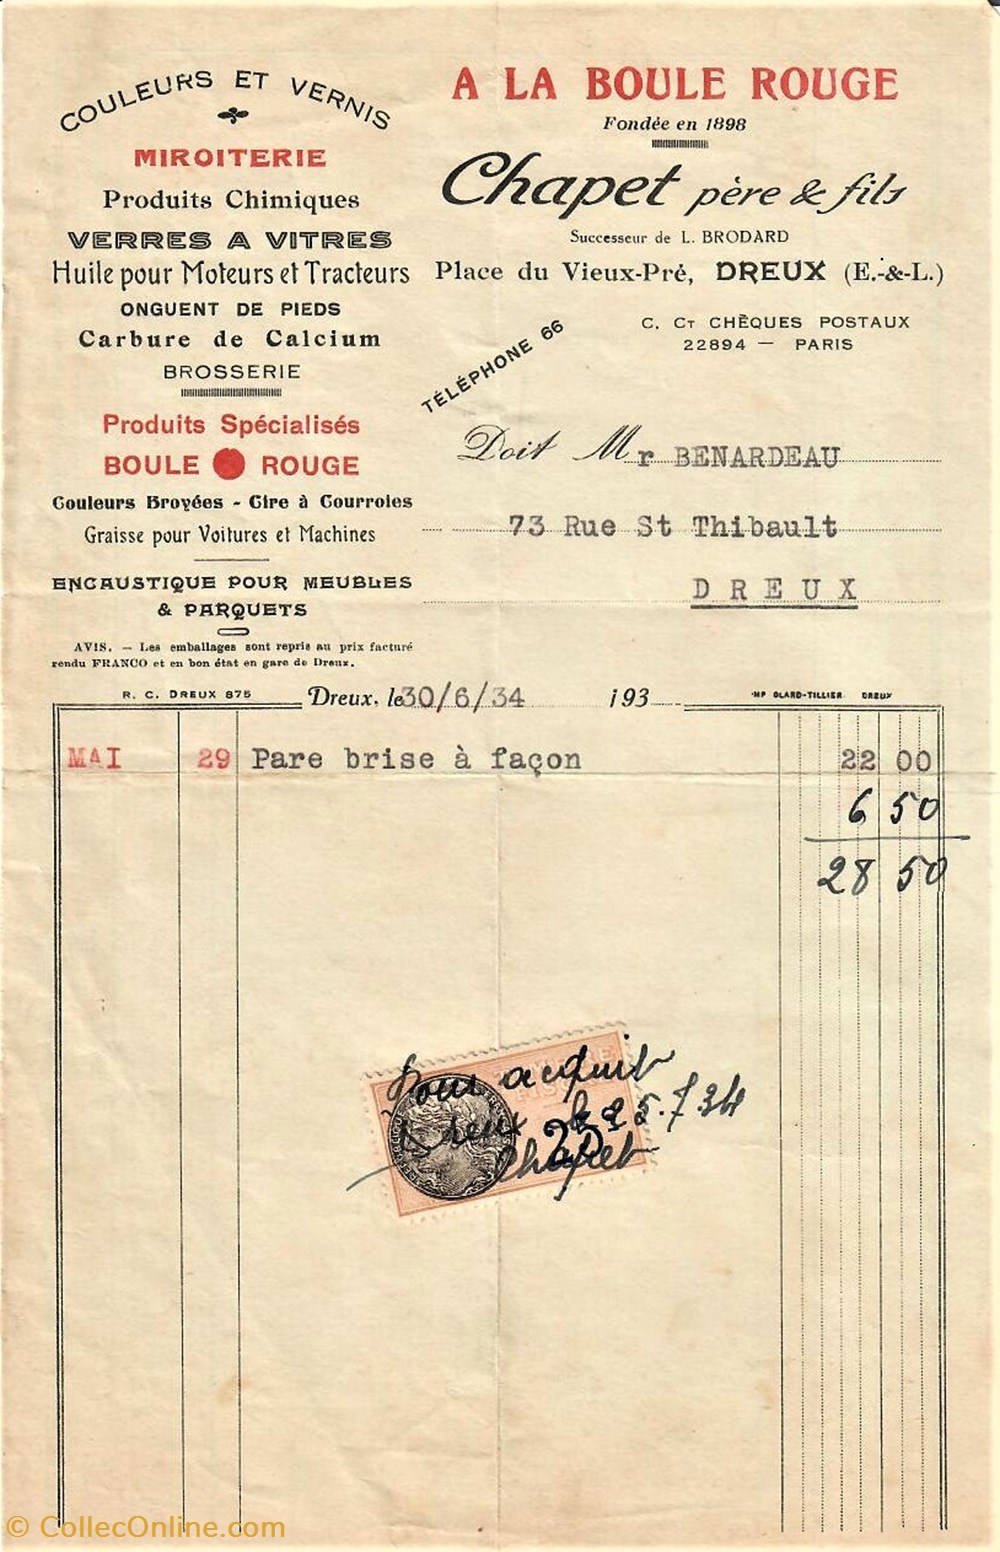 COULEURS ET VERNIS
MIROITERIE
Produits Chimiques
VERRES A VITRES
Huile pour Moteurs et Tracteurs
ONGUENT DE PIEDS
Carbure de Calcium
BROSSERIE
Produits Spécialisés
BOULE ROUGE
Couleurs Broyées - Cire à Courroies
Graisse pour Voitures et Machines
ENCAUSTIQUE POUR MEUBLES
& PARQUETS
AVIS. — Les emballages sont repris au prix facturé
rendu FRANCO et en bon état en gare de Dreux.
R. C. DREUX 875
A LA BOULE ROUGE
Fondée en 1898
Chapet père & fils
Successeur de L. BRODARD
Place du Vieux-Pré, DREUX (E.-&-L.)
C. CT CHÈQUES POSTAUX
22894 — PARIS
TÉLÉPHONE 66
Doit Mr BENARDEAU
73 Rue St Thibault
DREUX
Dreux, le 30/6/34 193
IMP OLARD-TILLIER DREUX
MAI 29 Pare brise à façon 22 00
6 50
28 50
Pour acquit
Dreux le 25.7.34
Chapet
© CollecOnline.com